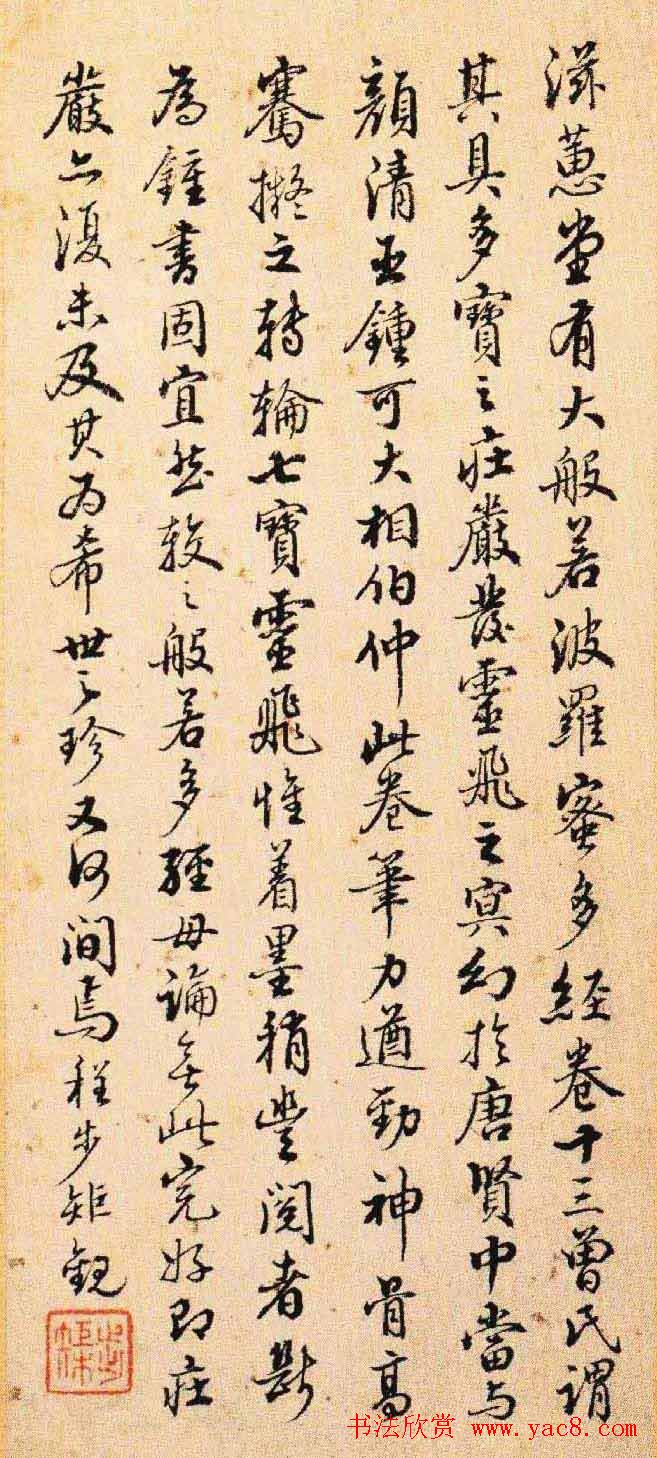 滋蕙堂有大般若波羅蜜多經卷十三曾氏謂
其具多寶之莊嚴發靈飛之冥幻於唐賢中當与
顏清臣鍾可大相伯仲此卷筆力遒勁神骨高
騫擬之轉輪七寶靈飛惟着墨稍豐閱者斷
為鍾書固宜然較之般若多經毋論無此完好即莊
嚴亦復未及其為希世之珍又何間焉程步矩觀
书法欣赏 www.yac8.com